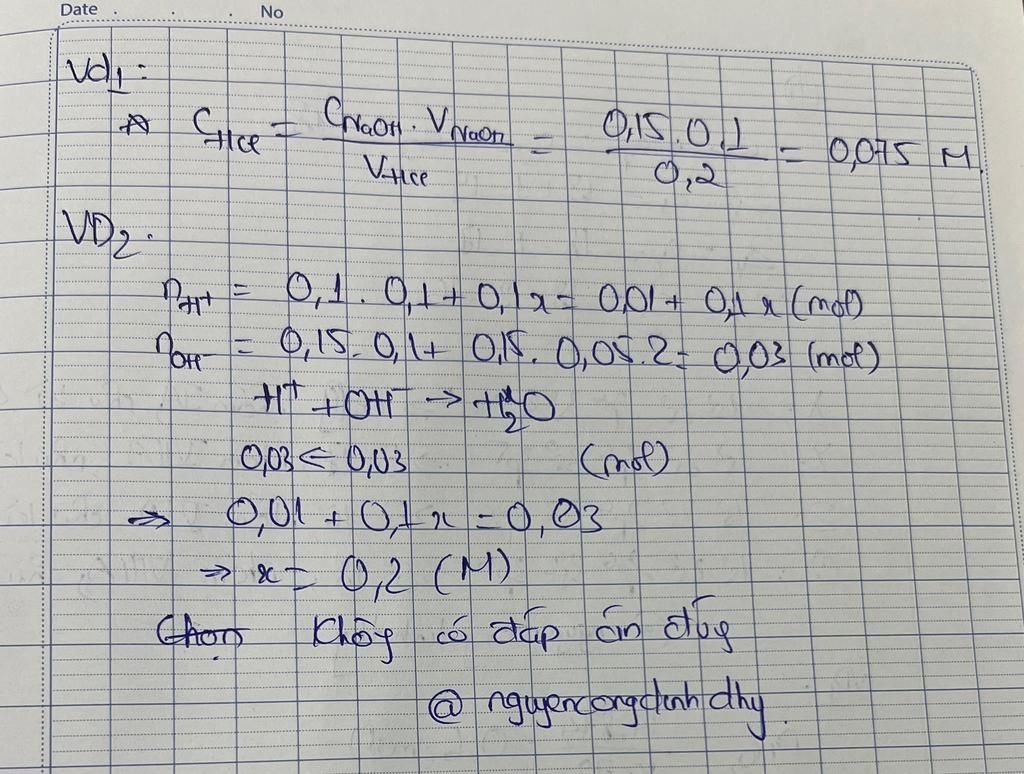 Date . . . No
Vd1:
* C_HCl = C_NaOH . V_NaOH / V_HCl = 0,15 . 0,1 / 0,2 = 0,075 M
VD2.
n_H⁺ = 0,1 . 0,1 + 0,1x = 0,01 + 0,1x (mol)
n_OH⁻ = 0,15 . 0,1 + 0,15 . 0,05 . 2 = 0,03 (mol)
H⁺ + OH⁻ → H₂O
0,03 ← 0,03 (mol)
⇒ 0,01 + 0,1x = 0,03
⇒ x = 0,2 (M)
Chọn Không có đáp án đúng
@ nguyencongdinhdhy.